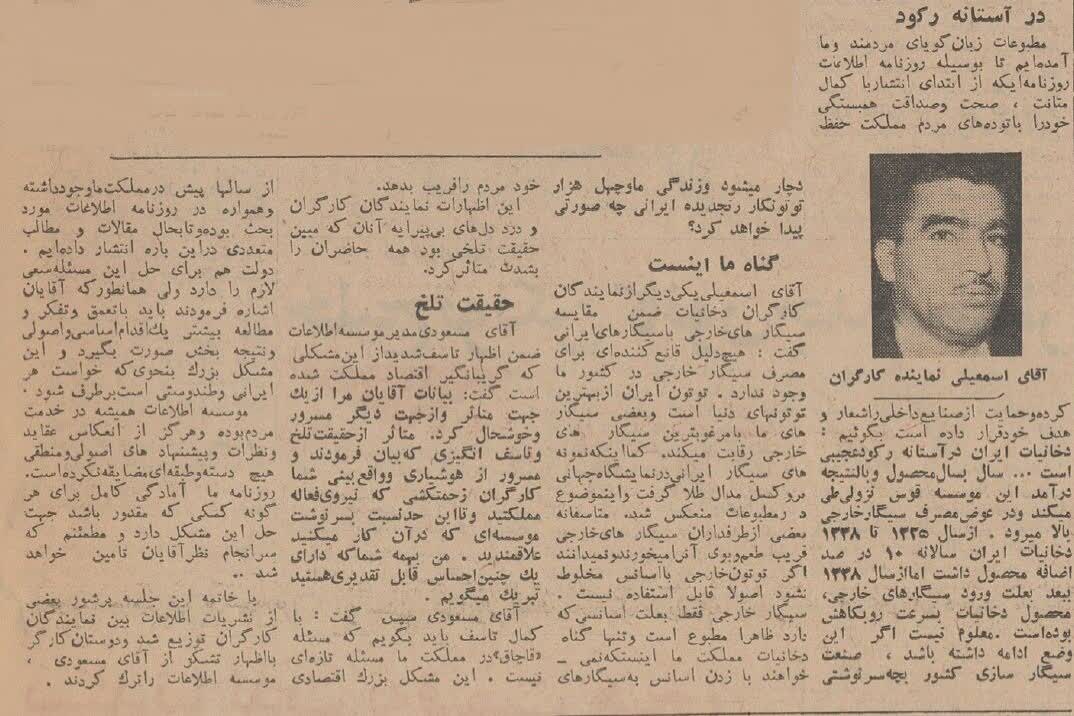 در آستانه رکود
مطبوعات زبان گویای مردمند وما
آمده‌ایم تا بوسیله روزنامه اطلاعات
روزنامه‌ایکه از ابتدای انتشاربا کمال
متانت ، صحت وصداقت همبستگی
خودرا باتوده‌های مردم مملکت حفظ
آقای اسمعیلی نماینده کارگران
کرده‌وحمایت ازصنایع‌داخلی‌راشعار و
هدف خودقرار داده است بگوئیم :
دخانیات ایران درآستانه رکودعجیبی
است ... سال بسال‌محصول وبالنتیجه
درآمد این موسسه قوس نزولی‌طی
میکند ودر عوض‌مصرف سیگارخارجی
بالا میرود . ازسال ۱۳۳۵ تا ۱۳۳۸
دخانیات ایران سالانه ۱۰ در صد
اضافه محصول داشت اماازسال ۱۳۳۸
ببعد بعلت ورود سیگارهای خارجی،
محصول دخانیات بسرعت روبکاهش
بوده‌است .معلوم نیست اگر این
وضع ادامه داشته باشد ، صنعت
سیگار سازی کشور بچه‌سرنوشتی
دچار میشود وزندگی ماوچهل هزار
توتونکار رنجدیده ایرانی چه صورتی
پیدا خواهد کرد؟
گناه ما اینست
آقای اسمعیلی‌یکی‌دیگرازنمایندگان
کارگران دخانیات ضمن مقایسه
سیگار های‌خارجی باسیگارهای‌ایرانی
گفت : هیچ‌دلیل قانع کننده‌ای برای
مصرف سیگار خارجی در کشور ما
وجود ندارد . توتون ایران ازبهترین
توتونهای دنیا است وبعضی سیگار
های ما بامرغوبترین سیگار های
خارجی رقابت میکند. کمااینکه‌نمونه
های سیگار ایرانی‌درنمایشگاه‌جهانی
بروکسل مدال طلا گرفت واینموضوع
د رمطبوعات منعکس شد. متاسفانه
بعضی ازطرفداران سیگارهای‌خارجی
فریب طعم‌وبوی آنرامیخورندونمیدانند
اگر توتون‌خارجی بااسانس مخلوط
نشود اصولا قابل استفاده نیست .
سیگار خارجی فقط بعلت اسانسی‌که
دارد ظاهرا مطبوع است وتنها گناه
دخانیات مملکت ما اینستکه‌نمی ـ
خواهند با زدن اسانس به‌سیگارهای
خود مردم رافریب بدهد.
این اظهارات نمایندگان کارگران
و درد دل‌های بی‌پیرایه آنان که مبین
حقیقت تلخی بود همه حاضران را
بشدت متاثرکرد.
حقیقت تلخ
آقای مسعودی‌مدیرموسسه‌اطلاعات
ضمن اظهار تاسف‌شدیداز این‌مشکلی
که گریبانگیر اقتصاد مملکت شده
است گفت: بیانات آقایان مرا ازیک
جهت متاثر وازجهت دیگر مسرور
وخوشحال کرد. متاثر ازحقیقت‌تلخ
وتاسف انگیزی که‌بیان فرمودند و
مسرور از هوشیاری وواقع‌بینی شما
کارگران زحمتکشی که نیروی‌فعاله
مملکتید وتااین حدنسبت بسرنوشت
موسسه‌ای که درآن کار میکنید
علاقمندید . من بهمه شماکه دارای
یک چنین‌احساس قابل تقدیری‌هستید
تبریک میگویم .
آقای مسعودی سپس گفت : با
کمال تاسف باید بگویم که مسئله
«قاچاق»در مملکت ما مسئله تازه‌ای
نیست . این مشکل بزرك اقتصادی
از سالها پیش درمملکت‌ماوجودداشته
وهمواره در روزنامه اطلاعات مورد
بحث بوده‌وتابحال مقالات و مطالب
متعددی دراین باره انتشار داده‌ایم .
دولت هم برای حل این مسئله‌سعی
لازم را دارد ولی همانطورکه آقایان
اشاره فرمودند باید باتعمق وتفکر و
مطالعه بیشتر یك‌اقدام‌اساسی‌واصولی
ونتیجه بخش صورت بگیرد و این
مشکل بزرك بنحوی‌که خواست هر
ایرانی وطندوستی است‌برطرف شود .
موسسه اطلاعات همیشه در خدمت
مردم‌بوده وهرگز از انعکاس عقاید
ونظرات وپیشنهاد های اصولی‌ومنطقی
هیچ دسته‌وطبقه‌ای‌مضایقه‌نکرده‌است.
روزنامه ما آمادگی کامل برای هر
گونه کمکی که مقدور باشد جهت
حل این مشکل دارد و مطمئنم که
سرانجام نظرآقایان تامین خواهد
شد ..
با خاتمه این جلسه پرشور بعضی
از نشریات اطلاعات بین نمایندگان
کارگران توزیع شد ودوستان‌کارگر
بااظهار تشکر از آقای مسعودی ،
موسسه اطلاعات راترك کردند .